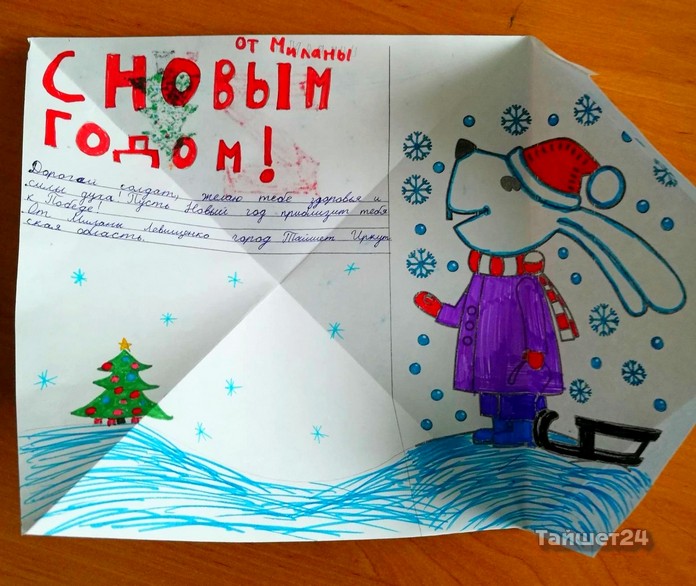 от Миланы
С НОВЫМ
ГОДОМ!
Дорогой солдат, желаю тебе здоровья и
силы духа! Пусть Новый год приблизит тебя
к Победе!
От Миланы Левищенко город Тайшет Иркут
ская область.
Тайшет24